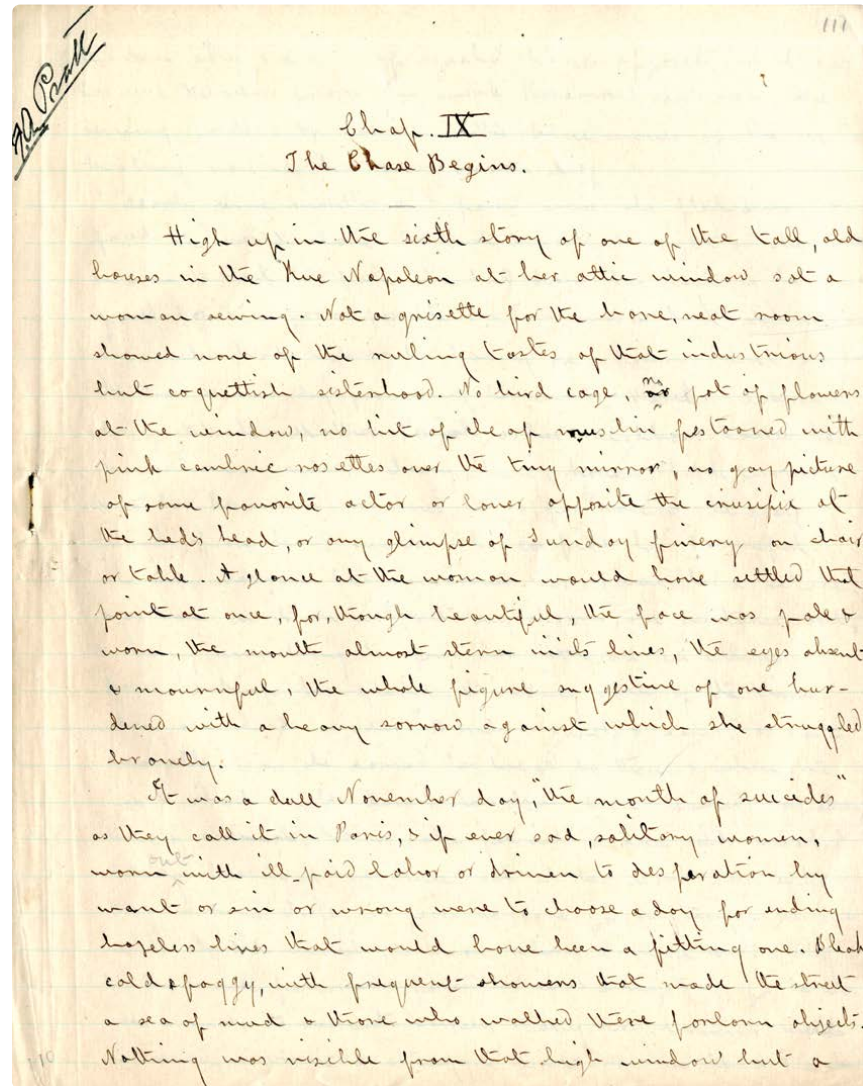 111
F.A. Pratt
Chap. IX
The Chase Begins.
High up in the sixth story of one of the tall, old
houses in the Rue Napoleon at her attic window sat a
woman sewing. Not a grisette for the bare, neat room
showed none of the ruling tastes of that industrious
but coquettish sisterhood. No bird cage, no pot of flowers
at the window, no bit of cheap muslin festooned with
pink cambric rosettes over the tiny mirror, no gay picture
of some favorite actor or lover opposite the crusifix at
the bed's head, or any glimpse of Sunday finery on chair
or table. A glance at the woman would have settled that
point at once, for, though beautiful, the face was pale &
worn, the mouth almost stern in its lines, the eyes absent
& mournful, the whole figure suggestive of one bur-
dened with a heavy sorrow against which she struggled
bravely.
It was a dull November day, "the month of suicides"
as they call it in Paris, & if ever sad, solitary women,
worn out with ill-paid labor or driven to desperation by
want or sin or wrong were to choose a day for ending
hopeless lives that would have been a fitting one. Bleak
cold & foggy, with frequent showers that made the street
a sea of mud & those who walked there forlorn objects.
Nothing was visible from that high window but a
110